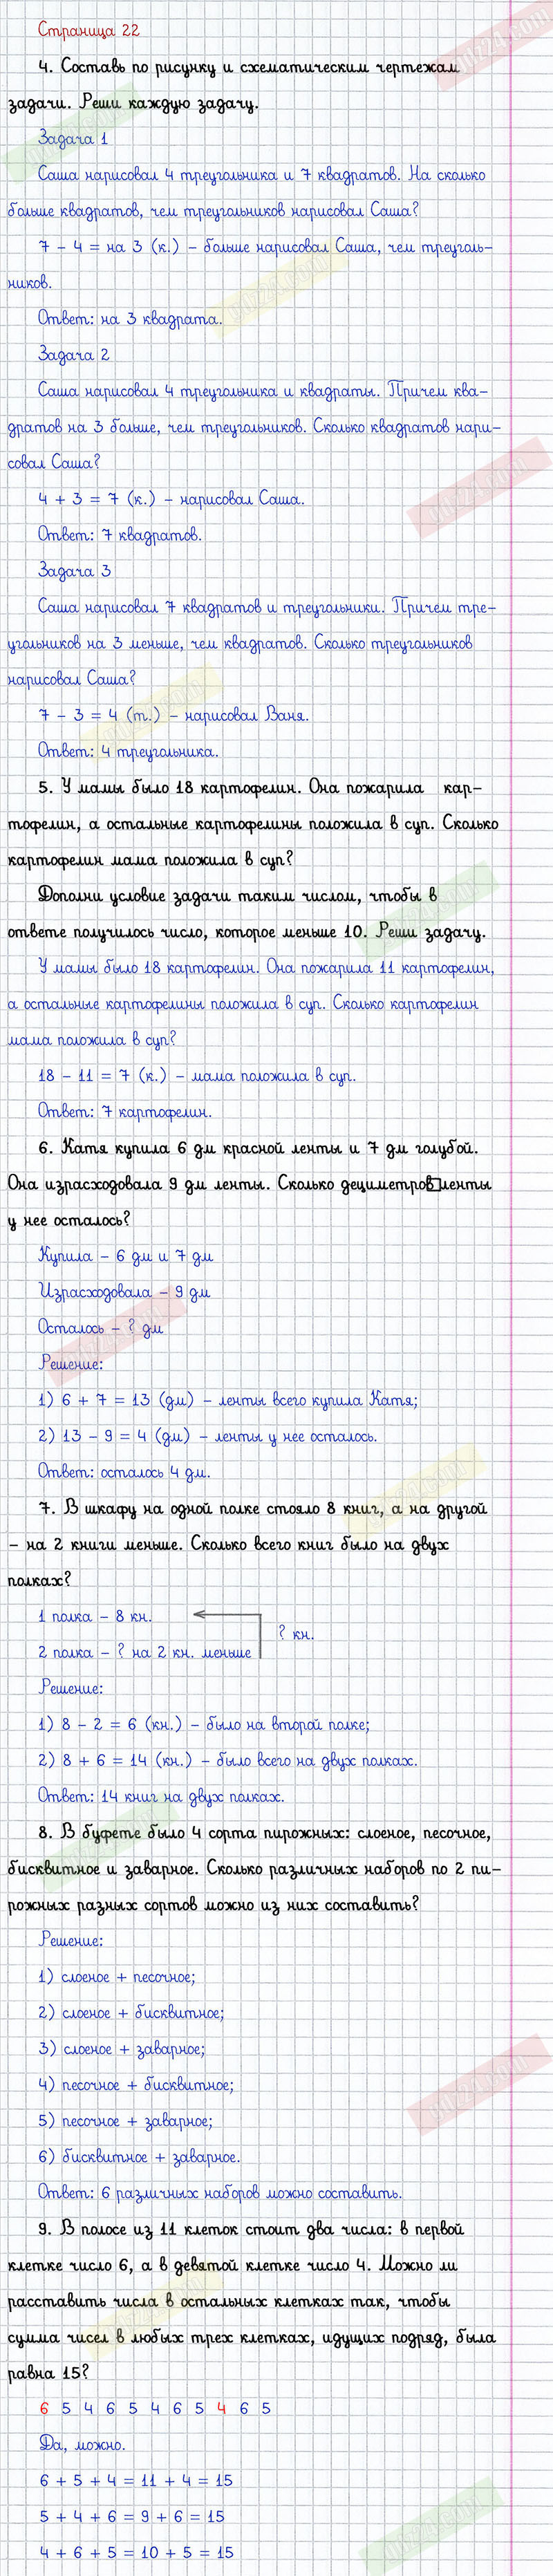 Страница 22
4. Составь по рисунку и схематическим чертежам
задачи. Реши каждую задачу.
Задача 1
Саша нарисовал 4 треугольника и 7 квадратов. На сколько
больше квадратов, чем треугольников нарисовал Саша?
7 – 4 = на 3 (к.) – больше нарисовал Саша, чем треуголь-
ников.
Ответ: на 3 квадрата.
Задача 2
Саша нарисовал 4 треугольника и квадраты. Причем ква-
дратов на 3 больше, чем треугольников. Сколько квадратов нари-
совал Саша?
4 + 3 = 7 (к.) – нарисовал Саша.
Ответ: 7 квадратов.
Задача 3
Саша нарисовал 7 квадратов и треугольники. Причем тре-
угольников на 3 меньше, чем квадратов. Сколько треугольников
нарисовал Саша?
7 – 3 = 4 (т.) – нарисовал Ваня.
Ответ: 4 треугольника.
5. У мамы было 18 картофелин. Она пожарила кар-
тофелин, а остальные картофелины положила в суп. Сколько
картофелин мама положила в суп?
Дополни условие задачи таким числом, чтобы в
ответе получилось число, которое меньше 10. Реши задачу.
У мамы было 18 картофелин. Она пожарила 11 картофелин,
а остальные картофелины положила в суп. Сколько картофелин
мама положила в суп?
18 – 11 = 7 (к.) – мама положила в суп.
Ответ: 7 картофелин.
6. Катя купила 6 дм красной ленты и 7 дм голубой.
Она израсходовала 9 дм ленты. Сколько дециметров ленты
у нее осталось?
Купила – 6 дм и 7 дм
Израсходовала – 9 дм
Осталось – ? дм
Решение:
1) 6 + 7 = 13 (дм) – ленты всего купила Катя;
2) 13 – 9 = 4 (дм) – ленты у нее осталось.
Ответ: осталось 4 дм.
7. В шкафу на одной полке стояло 8 книг, а на другой
– на 2 книги меньше. Сколько всего книг было на двух
полках?
1 полка – 8 кн.
? кн.
2 полка – ? на 2 кн. меньше
Решение:
1) 8 – 2 = 6 (кн.) – было на второй полке;
2) 8 + 6 = 14 (кн.) – было всего на двух полках.
Ответ: 14 книг на двух полках.
8. В буфете было 4 сорта пирожных: слоеное, песочное,
бисквитное и заварное. Сколько различных наборов по 2 пи-
рожных разных сортов можно из них составить?
Решение:
1) слоеное + песочное;
2) слоеное + бисквитное;
3) слоеное + заварное;
4) песочное + бисквитное;
5) песочное + заварное;
6) бисквитное + заварное.
Ответ: 6 различных наборов можно составить.
9. В полосе из 11 клеток стоит два числа: в первой
клетке число 6, а в девятой клетке число 4. Можно ли
расставить числа в остальных клетках так, чтобы
сумма чисел в любых трех клетках, идущих подряд, была
равна 15?
6 5 4 6 5 4 6 5 4 6 5
Да, можно.
6 + 5 + 4 = 11 + 4 = 15
5 + 4 + 6 = 9 + 6 = 15
4 + 6 + 5 = 10 + 5 = 15